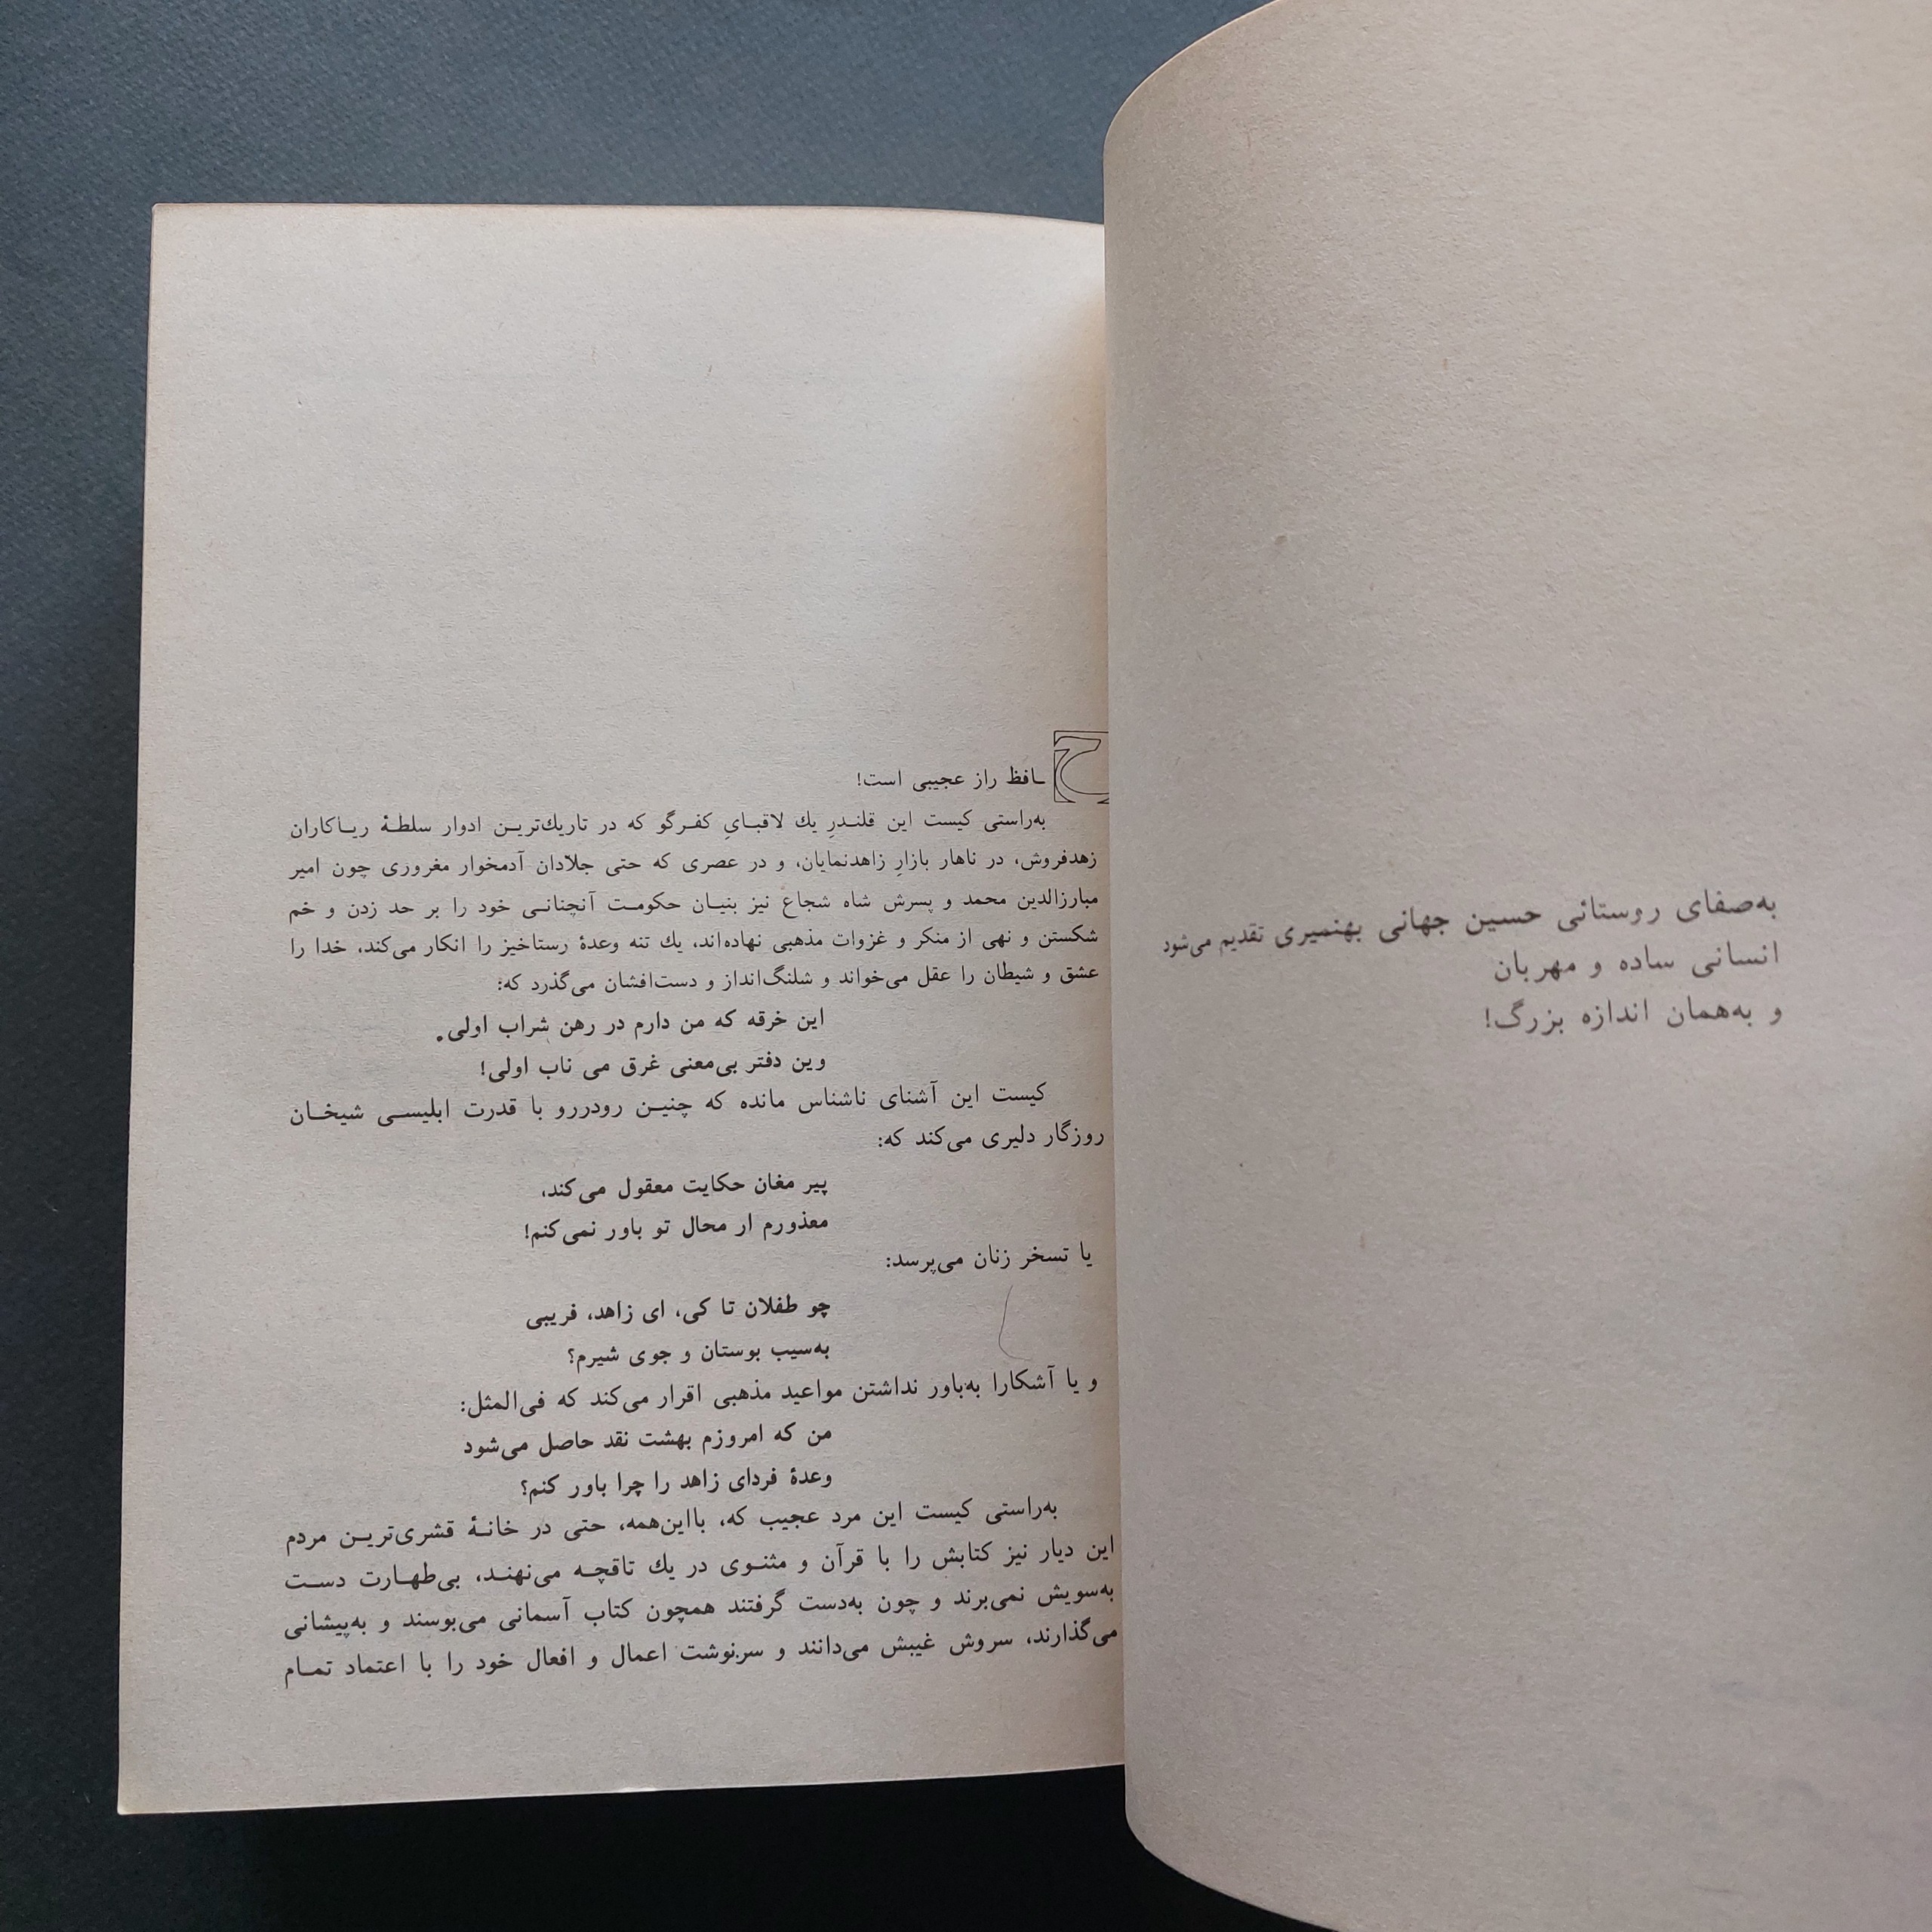 به‌صفای روستائی حسین جهانی بهنمیری تقدیم می‌شود
انسانی ساده و مهربان
و به‌همان اندازه بزرگ!
حـافظ راز عجیبی است!
به‌راستی کیست این قلنـدرِ یك لاقبـایِ کفـرگو که در تاریك‌تریـن ادوار سلطـهٔ ریـاکاران
زهدفروش، در ناهار بازارِ زاهدنمایان، و در عصری که حتی جلادان آدمخوار مغروری چون امیر
مبارزالدین محمد و پسرش شاه شجاع نیز بنیـان حکومـت آنچنانـی خود را بر حد زدن و خم
شکستن و نهی از منکر و غزوات مذهبی نهاده‌اند، یك تنه وعدهٔ رستاخیز را انکار می‌کند، خدا را
عشق و شیطان را عقل می‌خواند و شلنگ‌انداز و دست‌افشان می‌گذرد که:
این خرقه که من دارم در رهن شراب اولی.
وین دفتر بی‌معنی غرق می ناب اولی!
کیست این آشنای ناشناس مانده که چنیـن رودررو با قدرت ابلیسـی شیخـان
روزگار دلیری می‌کند که:
پیر مغان حکایت معقول می‌کند،
معذورم ار محال تو باور نمی‌کنم!
یا تسخر زنان می‌پرسد:
چو طفلان تا کی، ای زاهد، فریبی
به‌سیب بوستان و جوی شیرم؟
و یا آشکارا به‌باور نداشتن مواعید مذهبی اقرار می‌کند که فی‌المثل:
من که امروزم بهشت نقد حاصل می‌شود
وعدهٔ فردای زاهد را چرا باور کنم؟
به‌راستی کیست این مرد عجیب که، بااین‌همه، حتی در خانـهٔ قشری‌تریـن مردم
این دیار نیز کتابش را با قرآن و مثنـوی در یك تاقچـه می‌نهنـد، بی‌طهـارت دسـت
به‌سویش نمی‌برند و چون به‌دست گرفتند همچون کتاب آسمانی می‌بوسند و به‌پیشانی
می‌گذارند، سروش غیبش می‌دانند و سرنوشت اعمال و افعال خود را با اعتماد تمـام